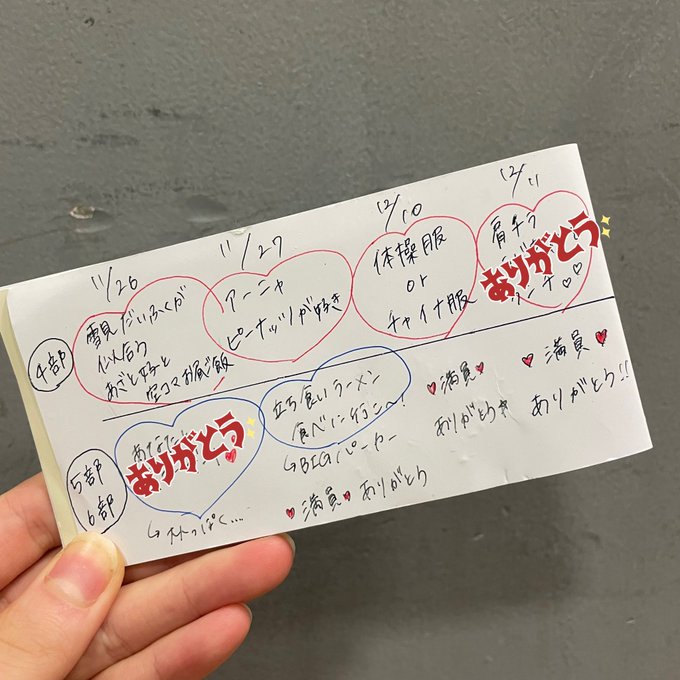 11/26
11/27
12/10
12/11
4部
雪見だいふくが
あざと女子と
空コマお昼ご飯
アーニャ
ピーナッツが好き
体操服
or
チャイナ服
肩チラ
ありがとう
チ♡♡
5部
6部
あなたと
ありがとう
↳ ストっぽく...
立ち食いラーメン
食べに行こへ!
↳BIGパーカー
♥満員♥ありがとう
♥満員♥
ありがとう
♥満員♥
ありがとう!!